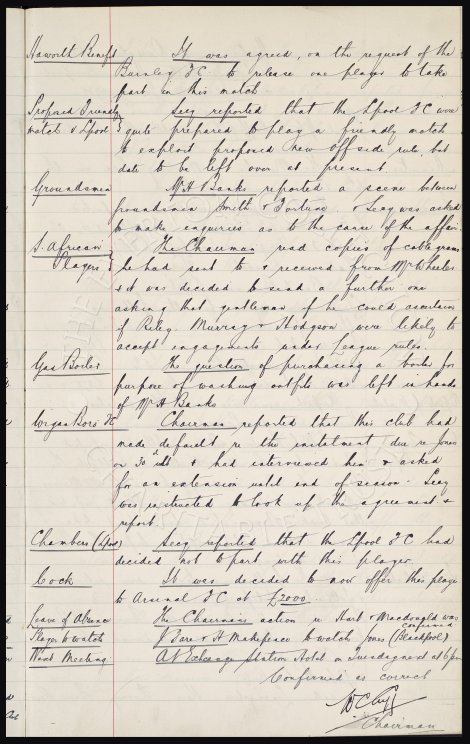 Haworth Benefit It was agreed, on the request of the
Burnley FC to release one player to take
part in this match
Proposed Friendly Secy reported that the Lpool FC were
match v Lpool quite prepared to play a friendly match
to exploit proposed new offside rule, but
date to be left over at present.
Groundsmen Mr H Banks reported a scene between
groundsmen Smith & Fortune. & Secy was asked
to make enquiries as to the cause of the affair.
S. African The Chairman read copies of cablegrams
Players he had sent to & received from Mr Wheeler
& it was decided to send a further one
asking that gentleman if he could ascertain
if Riley Murray & Hodgson were likely to
accept engagements under League rules.
Gas Boiler The question of purchasing a boiler for
purpose of washing outfits was left in hands
of Mr H Banks
Wigan Boro' FC Chairman reported that this club had
made default re the instalment due re Jones
on 30th & had interviewed him & asked
for an extension until end of season. Secy
was instructed to look up the agreement &
report.
Chambers (Lpool) Secy reported that the Lpool FC had
decided not to part with this player.
Cock It was decided to now offer this player
to Arsenal FC at £2000.
Leave of Absence The Chairman's action re Hart & Macdonald was
confirmed
Player to watch & H Makepeace to watch Jones (Blackpool)
Next Meeting At Exchange Station Hotel on Tuesday next at 6pm
Confirmed as correct
Chairman